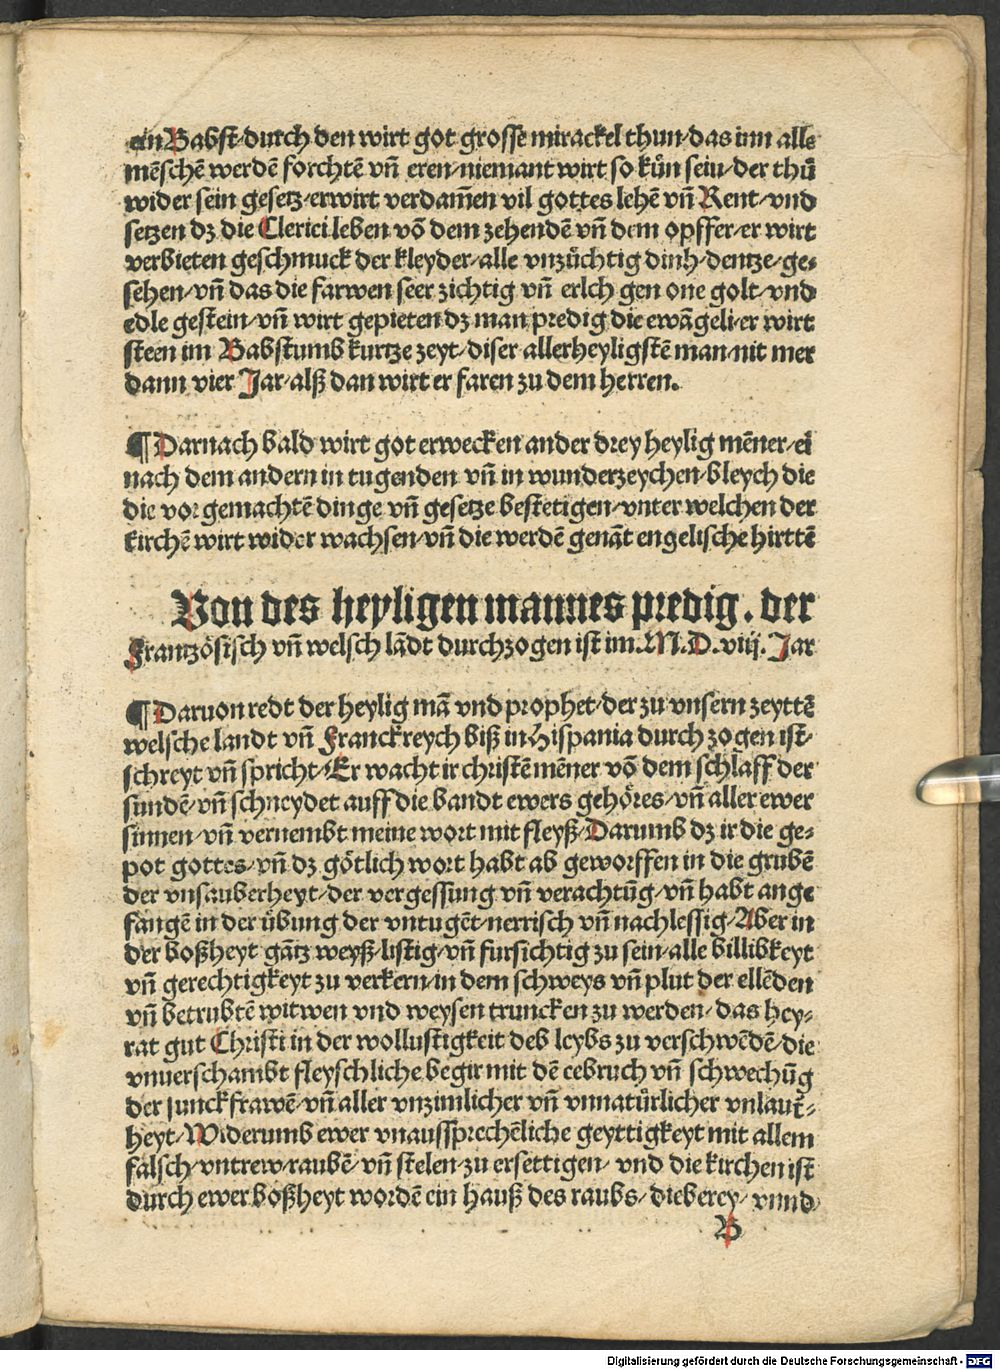 ein Babst/durch den wirt got grosse mirackel thun/das inn alle
mēschē werdē forchtē vñ eren/niemant wirt so kün sein/der thů
wider sein gesetz/erwirt verdam̄en vil gottes lehē vñ Rent/vnd
setzen dz die Clerici leben vō dem zehendē vñ dem opffer/er wirt
verbieten geschmuck der kleyder/alle vnzüchtig dinh/dentze/ge⸗
sehen/vñ das die farwen seer zichtig vñ erlch gen one golt/vnd
edle gestein/vñ wirt gepieten dz man predig die ewāgeli/er wirt
steen im Babstumb kurtze zeyt/diser allerheyligstē man/nit mer
dann vier Jar/alß dan wirt er faren zu dem herren.
¶ Darnach bald wirt got erwecken ander drey heylig mēner/ei
nach dem andern in tugenden vñ in wunderzeychen/bleych die
die vor gemachtē dinge vñ gesetze bestetigen/vnter welchen der
kirchē wirt wider wachsen/vñ die werdē genāt engelische hirttē
Von des heyligen mannes predig. der
Frantzösisch vñ welsch lādt durchzogen ist im.M.D.viij.Jar
¶ Daruon redt der heylig mā vnd prophet/der zu vnsern zeyttē
welsche landt vñ Franckreych biß in Hispania durch zogen ist/
schreyt vñ spricht/Er wacht ir christē mēner vō dem schlaff der
sundē/vñ schneydet auff die bandt ewers gehöres/vñ aller ewer
sinnen/vñ vernembt meine wort mit fleyß/Darumb dz ir die ge⸗
pot gottes/vñ dz götlich wort habt ab geworffen in die grubē
der vnsauberheyt/der vergessung vñ verachtūg/vñ habt ange
fangē in der übung der vntugēt/nerrisch vñ nachlessig/Aber in
der boßheyt gātz weyß/listig/vñ fursichtig zu sein/alle billibkeyt
vñ gerechtigkeyt zu verkern/in dem schweys vñ plut der ellēden
vñ betrubtē witwen vnd weysen truncken zu werden/das hey⸗
rat gut Christi in der wollustigkeit deb leybs zu verschwēdē/die
vnuerschambt fleyschliche begir mit dē eebruch vñ schwechūg
der junckfrawē/vñ aller vnzimlicher vñ vnnatürlicher vnlaut̄⸗
heyt/Widerumb ewer vnaussprechēliche geyttigkeyt mit allem
falsch/vntrew/raubē/vñ stelen/zu ersettigen/ vnd die kirchen ist
durch ewer boßheyt wordē ein hauß des raubs/dieberey/vnnd
B
Digitalisierung gefördert durch die Deutsche Forschungsgemeinschaft - DFG